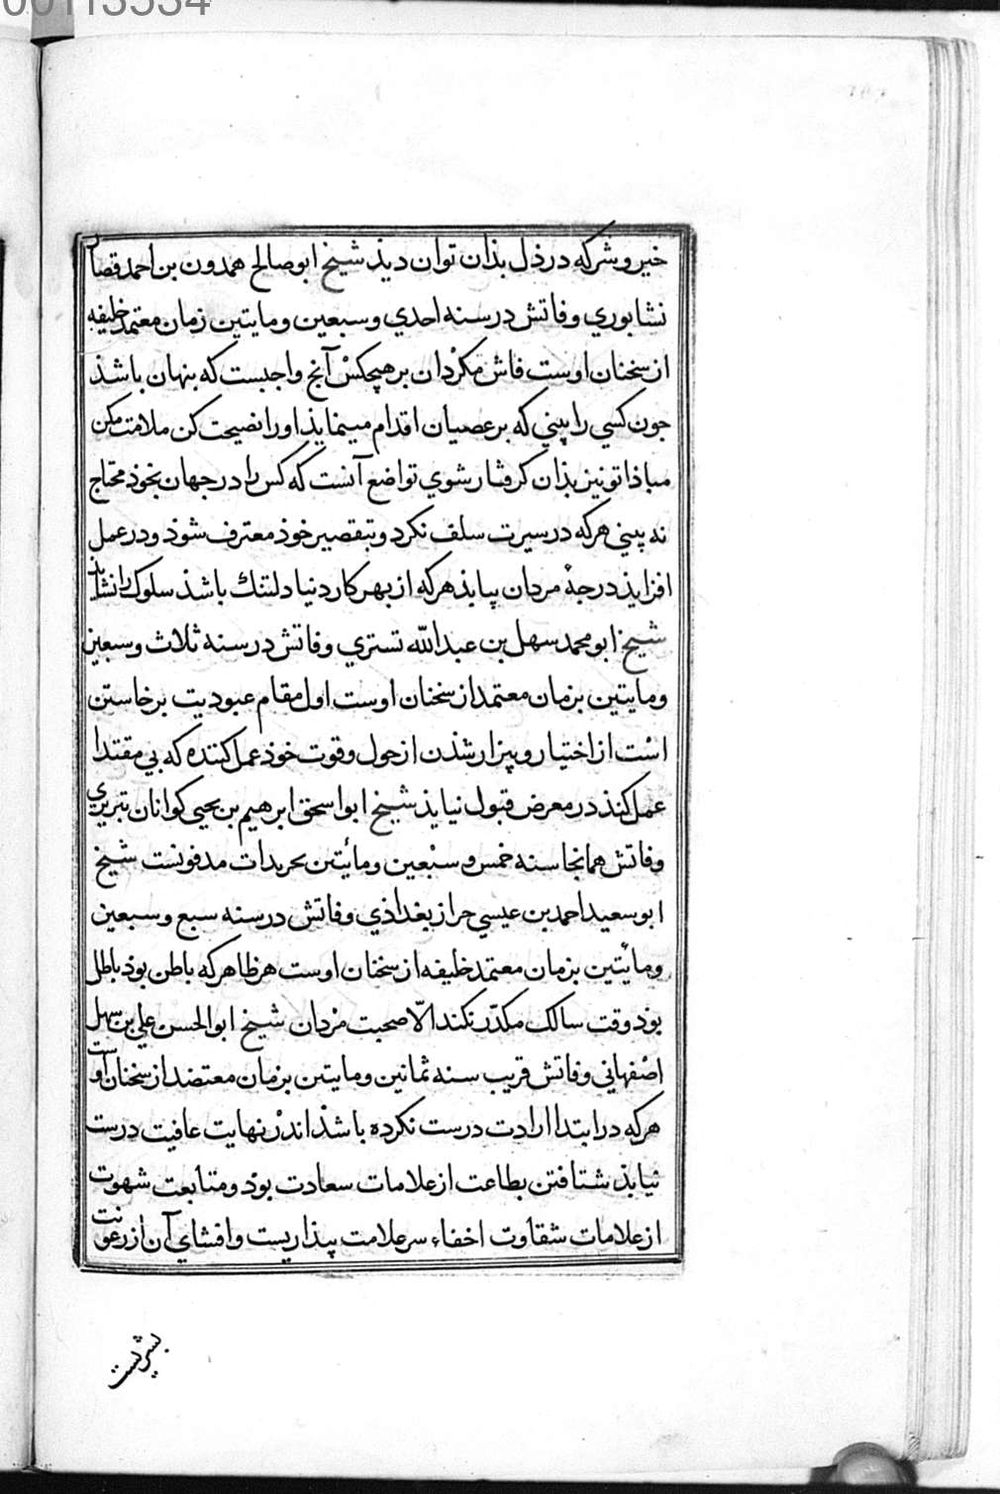 00113534
خیر و شر که در دل بذان توان دیذ شیخ ابو صالح همدون بن احمد قصار
نشابوري وفاتش در سنه احدي و سبعین و مایتین زمان معتمد خلیفه
از سخنان اوست فاش مکرْدان بر هیچکسْ آنچ واجبست که بنهان باشذ
جون کسي را بیني که بر عصیان اقدام مینمایذ او را نصیحت کن ملامت مکن
مباذا تو نیز بذان کرفتار شوي تواضع آنست که کس را در جهان بخوذ محتاج
نه بیني هر که در سیرت سلف نکرد و بتقصیر خوذ معترف شوذ و در عمل
افزایذ درجهٔ مردان بیابذ هر که از بهر کار دنیا دلتنك باشذ سلوک را نشایذ
شیخ ابو محمد سهل بن عبد الله تستري وفاتش در سنه ثلاث و سبعین
و مایتین بزمان معتمد از سخنان اوست اول مقام عبودیت برخاستن
است از اختیار و بیزار شذن از حول و قوت خوذ عمل کننده که بي مقتدا
عمل کنذ در معرض قبول نیایذ شیخ ابو اسحق ابرهیم بن یحیي کوانان تبریزي
وفاتش همانجا سنه خمس و سبعین و مائتین بحریدات مدفونست شیخ
ابو سعید احمد بن عیسي حراز بغداذي وفاتش در سنه سبع و سبعین
و مایٔتین بزمان معتمد خلیفه از سخنان اوست هر ظاهر که باطن بوذ باطل
بوذ وقت سالک مکدّر نکند الّا صحبت مردان شیخ ابو الحسن علي بن سهل
اصفهاني وفاتش قریب سنه ثمانین و مایتین بزمان معتضد از سخنان اوست
هر که در ابتدا ارادت درست نکرده باشذ اندر نهایت عافیت درست
نیابذ شتافتن بطاعت از علامات سعادت بوذ و متابعت شهوت
از علامات شقاوت اخفاء سر علامت بیذاریست و افشاي آن از رعونت
بشریست